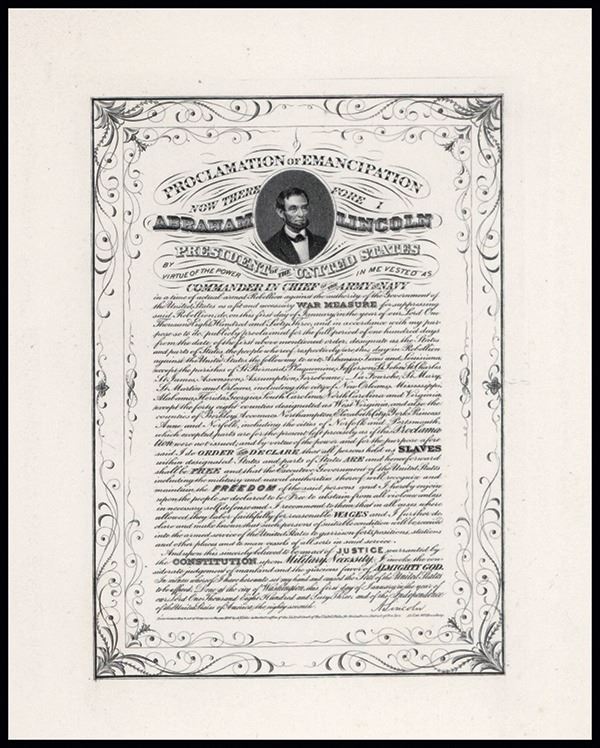 PROCLAMATION OF EMANCIPATION
NOW THERE FORE I
ABRAHAM LINCOLN
PRESIDENT OF THE UNITED STATES
BY VIRTUE OF THE POWER IN ME VESTED AS
COMMANDER IN CHIEF OF THE ARMY AND NAVY
in a time of actual armed Rebellion against the authority of the Government of
the United States as a fit and necessary WAR MEASURE for suppressing
said Rebellion, do, on this first day of January, in the year of our Lord One
Thousand Eight Hundred and Sixty three, and in accordance with my pur-
pose so to do, publicly proclaimed for the full period of one hundred days
from the date of the first above mentioned order, designate as the States
and parts of States, the people whereof respectively are this day in Rebellion
against the United States, the following to wit: Arkansas, Texas and Louisiana
except the parishes of St. Bernard, Plaquemines, Jefferson, St. John, St. Charles
St. James, Ascension, Assumption, Terrebonne, La Fourche, St. Mary,
St. Martin and Orleans, including the city of New Orleans, Mississippi,
Alabama, Florida, Georgia, South Carolina, North Carolina and Virginia
except the forty eight counties designated as West Virginia, and also the
counties of Berkley, Accomac, Northampton, Elizabeth City, York, Princess
Anne and Norfolk, including the cities of Norfolk and Portsmouth,
which excepted parts are for the present left precisely as if this Proclama
tion were not issued, and by virtue of the power and for the purpose afore
said I do ORDER AND DECLARE that all persons held as SLAVES
within designated States and parts of States ARE and henceforward
shall be FREE and that the Executive Government of the United States
including the military and naval authorities thereof will recognize and
maintain the FREEDOM of the said persons and I hereby enjoin
upon the people so declared to be Free to abstain from all violence unless
in necessary self defense and I recommend to them that in all cases where
allowed, they labor faithfully for reasonable WAGES and I further de-
clare and make known that such persons of suitable condition will be received
into the armed service of the United States to garrison forts, positions, stations
and other places and to man vessels of all sorts in said service.
And upon this sincerely believed to be an act of JUSTICE warranted by
the CONSTITUTION, upon Military Necessity, I invoke the con-
siderate judgement of mankind and the gracious favor of ALMIGHTY GOD.
In witness whereof, I have hereunto set my hand and caused the Seal of the United States
to be affixed. Done at the city of Washington, this first day of January, in the year of
our Lord One Thousand Eight Hundred and Sixty Three, and of the Independence
of the United States of America, the eighty seventh.
A. Lincoln